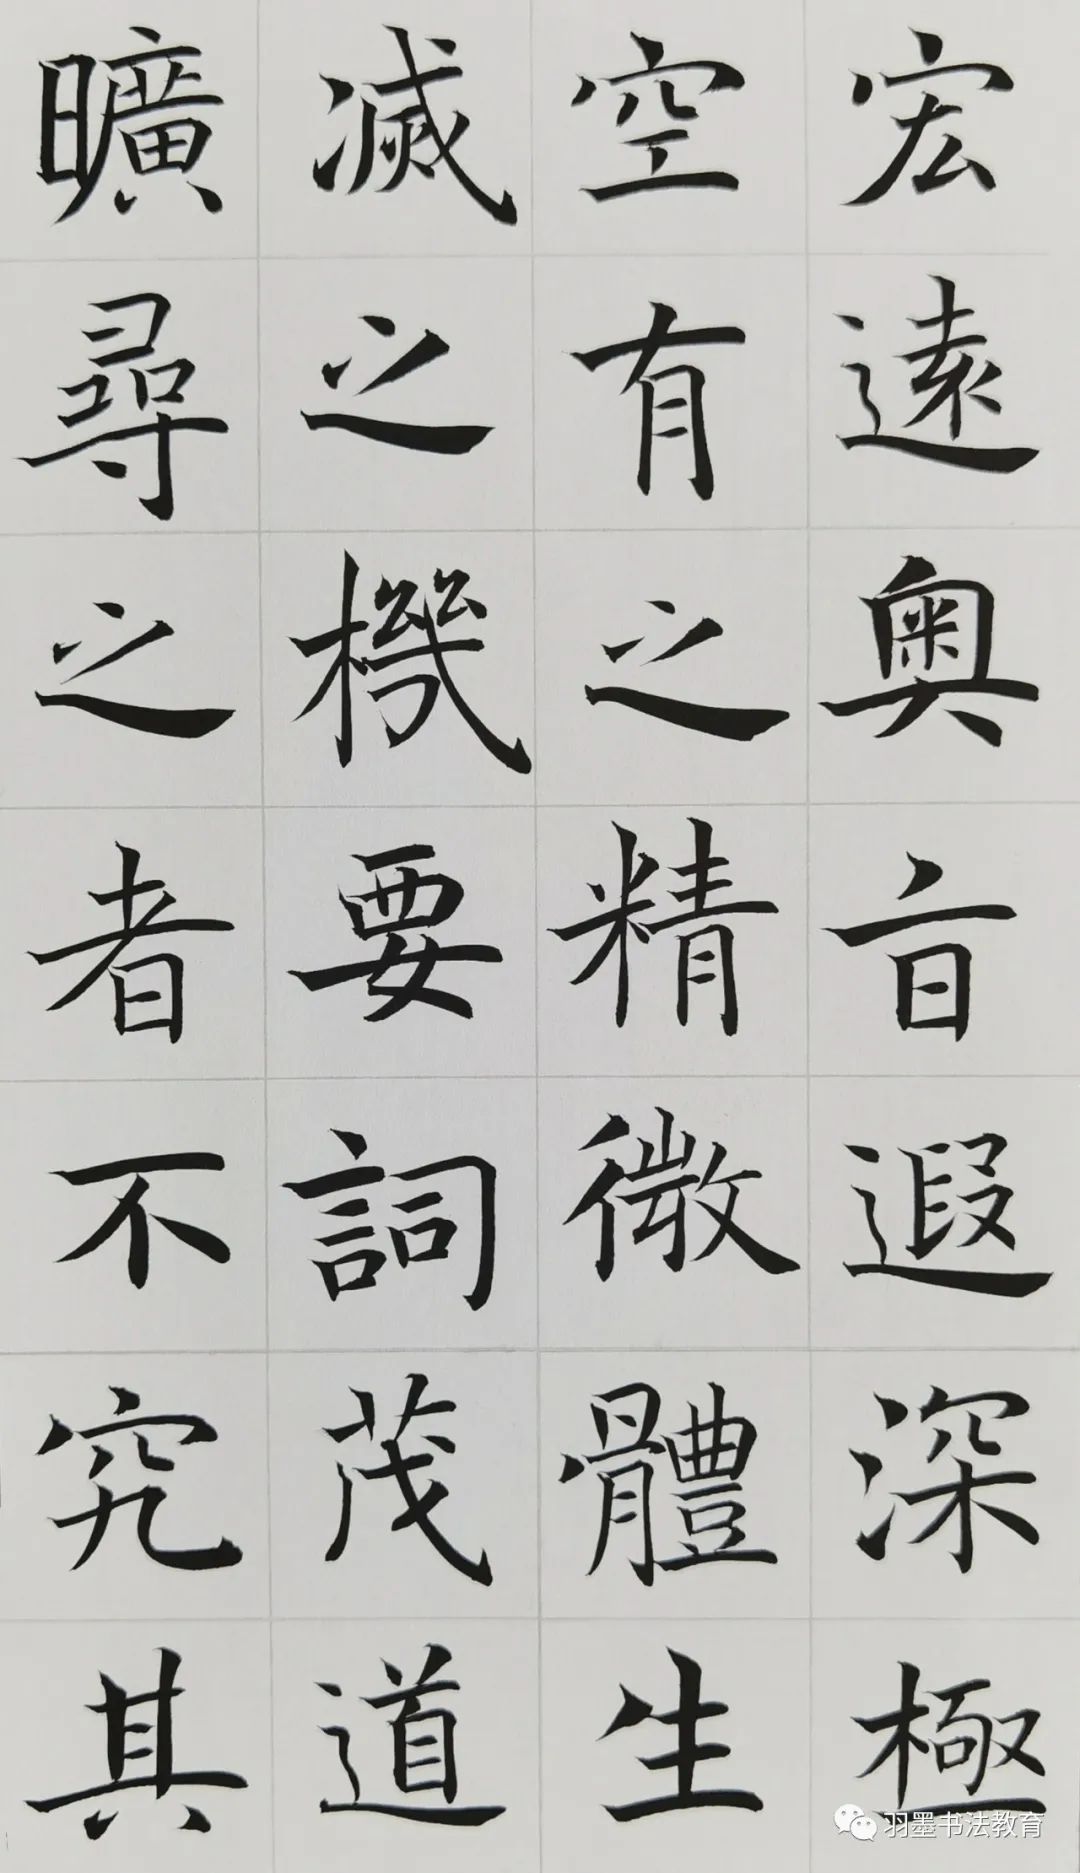 宏遠奥旨遐深極
空有之精微體生
滅之機要詞茂道
曠尋之者不究其
羽墨书法教育